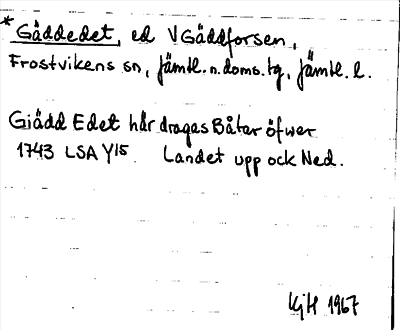 *Gäddedet, ed V Gäddforsen,
Frostvikens sn, Jämtl. n. doms. tg, Jämtl. l.
Giädd Edet här dragas Båtar öfwer
1743 LSA Y15. Landet upp ock Ned.
KjH 1967